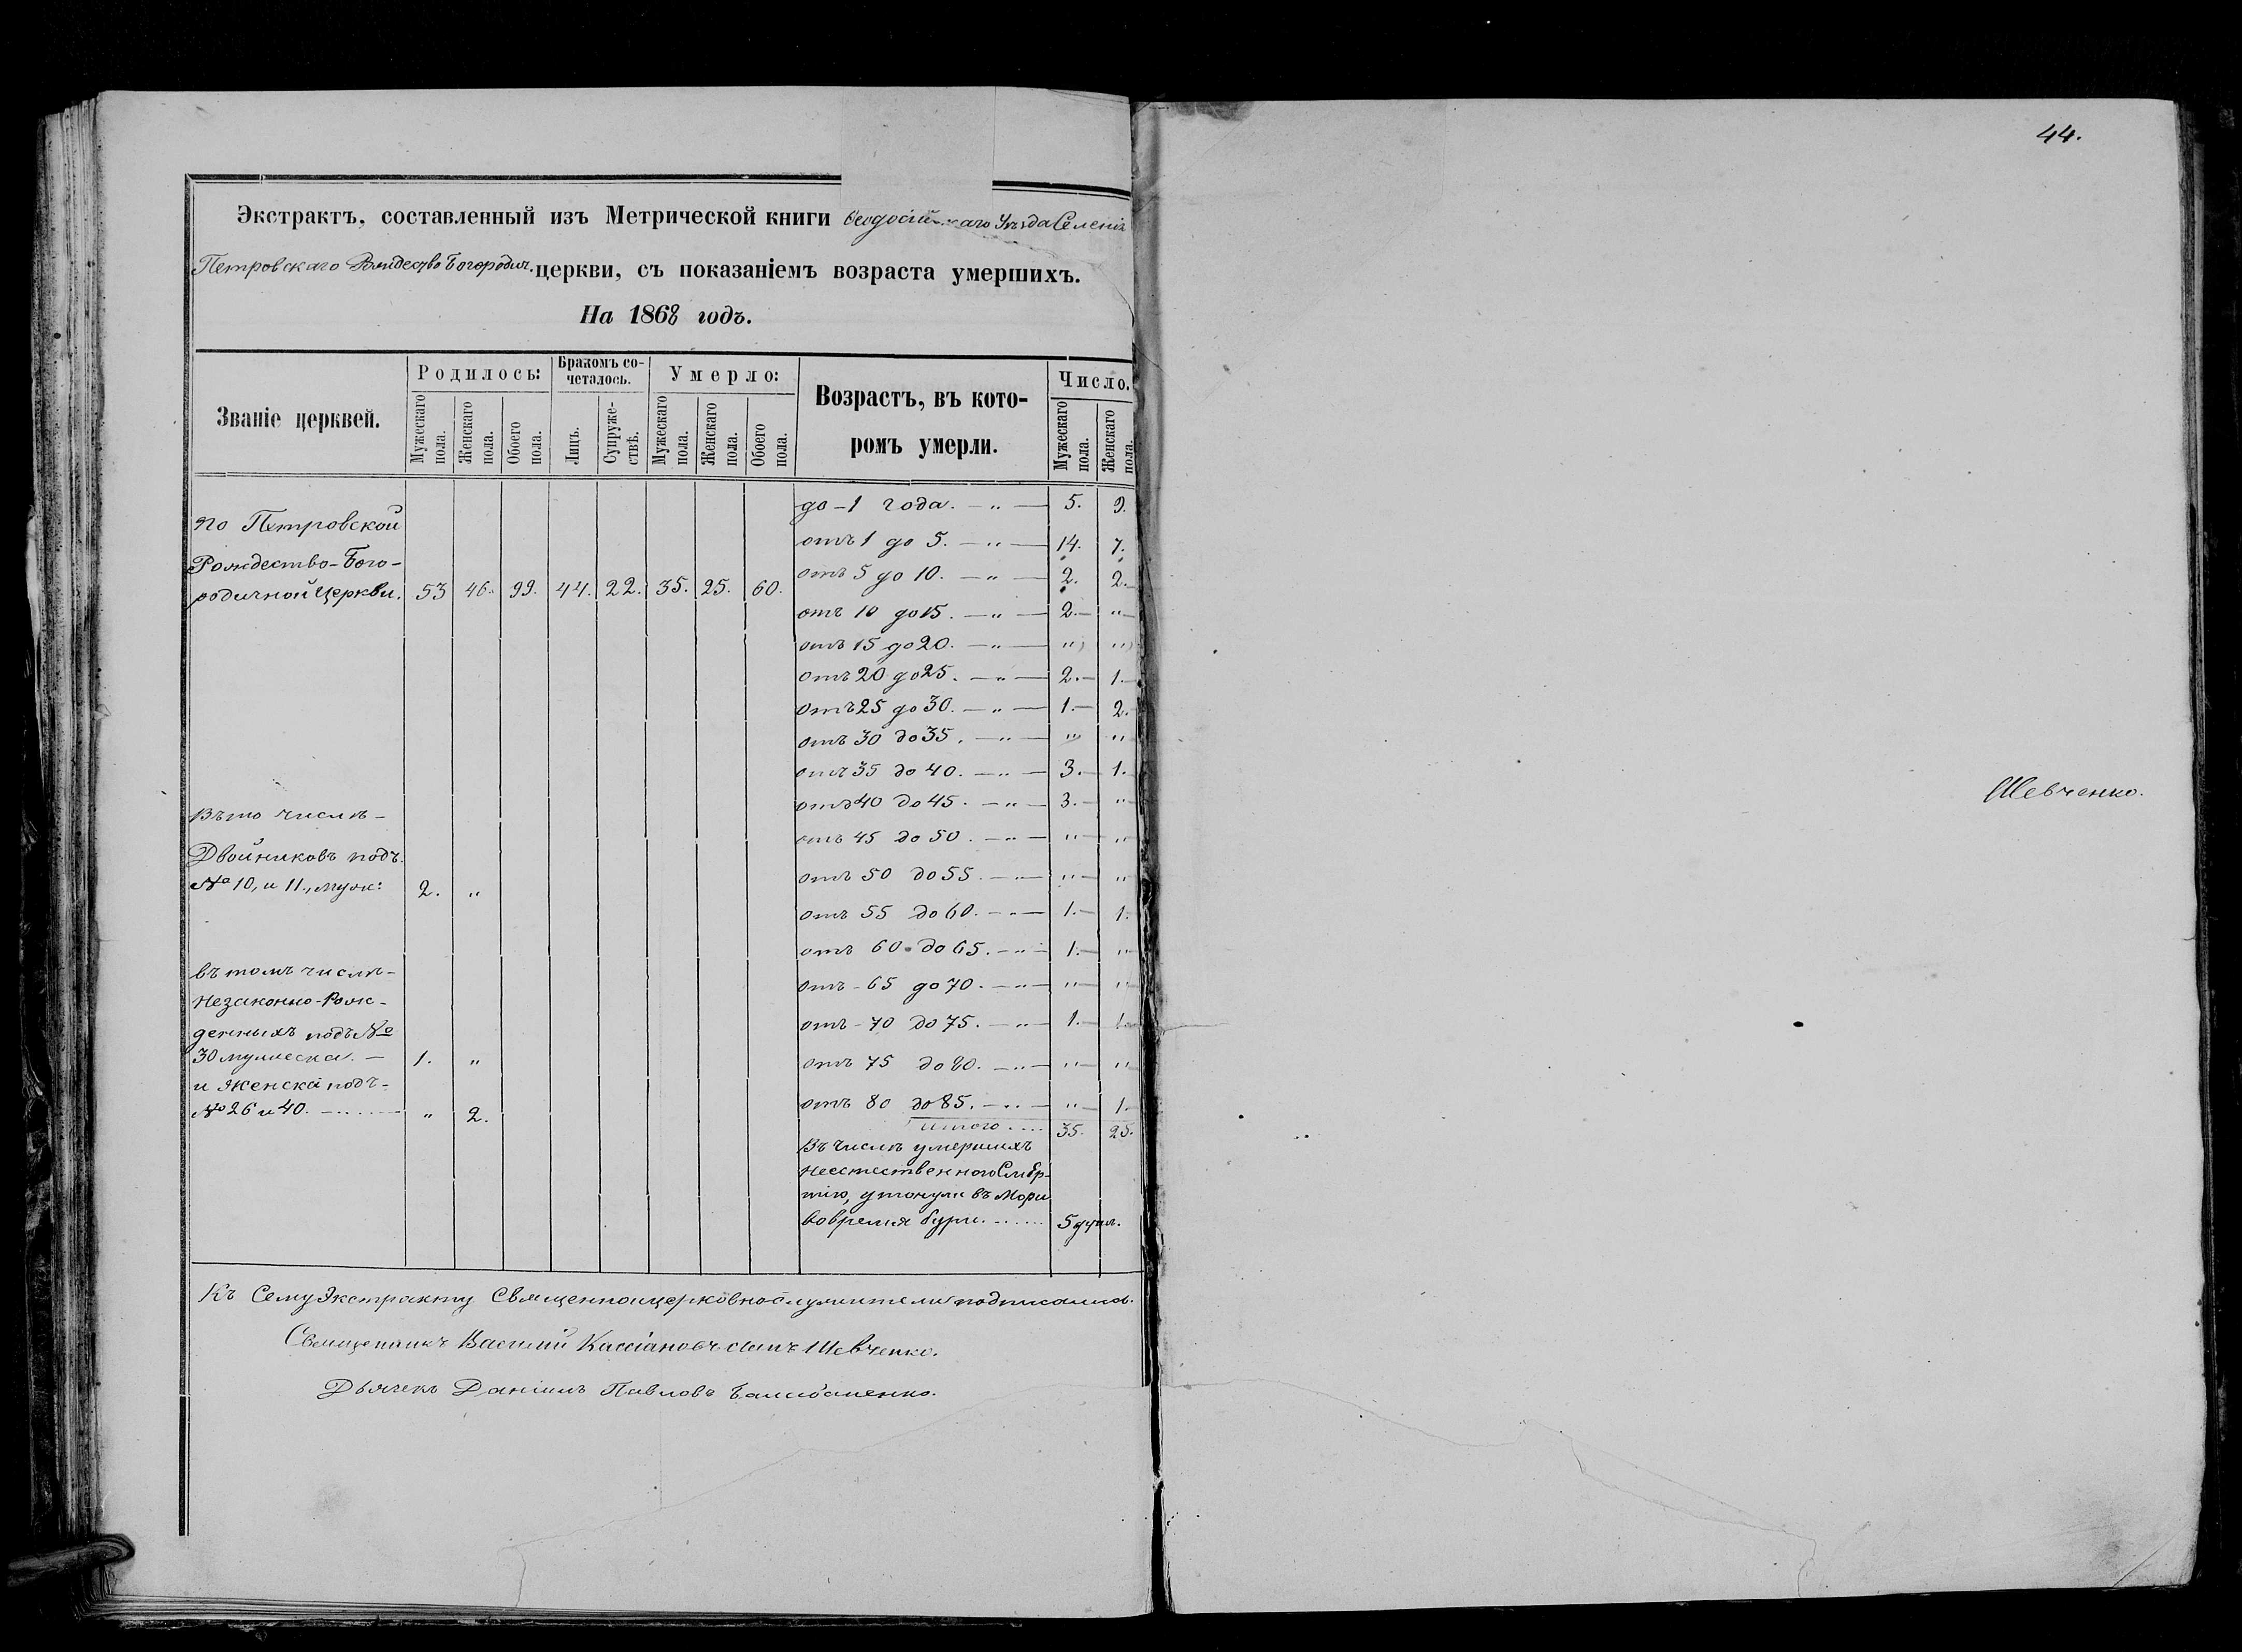 44.
Экстрактъ, составленный изъ Метрической книги Ѳеодосійскаго Уѣзда Селенія
Петровскаго Рождество Богородич. церкви, съ показаніемъ возраста умершихъ.
На 1868 годъ.
Званіе церквей. Родилось: Бракомъ сочеталось. Умерло: Возрастъ, въ которомъ умерли. Число.
Мужескаго пола. Женскаго пола. Обоего пола. Лицъ. Супружествъ. Мужескаго пола. Женскаго пола. Обоего пола. Мужескаго пола. Женскаго пола.
По Петровской
Рождество-Бого-
родичной Церкви. 53 46. 99. 44. 22. 35. 25. 60.
Въ то числѣ-
Двойниковъ подъ
№ 10, и 11, муж: 2. "
въ томъ числѣ-
Незаконно-Рож-
денныхъ подъ №
30 мужеска. — 1. "
и Женскі подъ-
№ 26 и 40. " 2.
до - 1 года. — " — 5. 9.
отъ 1 до 5. — " — 14. 7.
отъ 5 до 10. — " — 2. 2.
отъ 10 до 15. — " — 2. "
отъ 15 до 20. — " — " "
отъ 20 до 25. — " — 2. 1.
отъ 25 до 30. — " — 1. 2.
отъ 30 до 35. — " — " "
отъ 35 до 40. — " — 3. 1.
отъ 40 до 45. — " — 3. "
отъ 45 до 50. — " — " "
отъ 50 до 55. — " — " "
отъ 55 до 60. — " — 1. 1.
отъ 60 до 65. — " — 1. "
отъ - 65 до 70. — " — " "
отъ - 70 до 75. — " — 1. 1.
отъ 75 до 80. — " — " "
отъ 80 до 85. — " — " 1.
Итого .... 35. 25.
Въ числѣ умершихъ
неестественного Смер-
тію, утонули въ Мори
вовремя бури. ...... 5 душ.
Къ Сему Экстракту Священноицерковнослужители подписались.
Священникъ Василий Кассіановъ сынъ Шевченко.
Дьячекъ Даніилъ Павловъ
Шевченко.